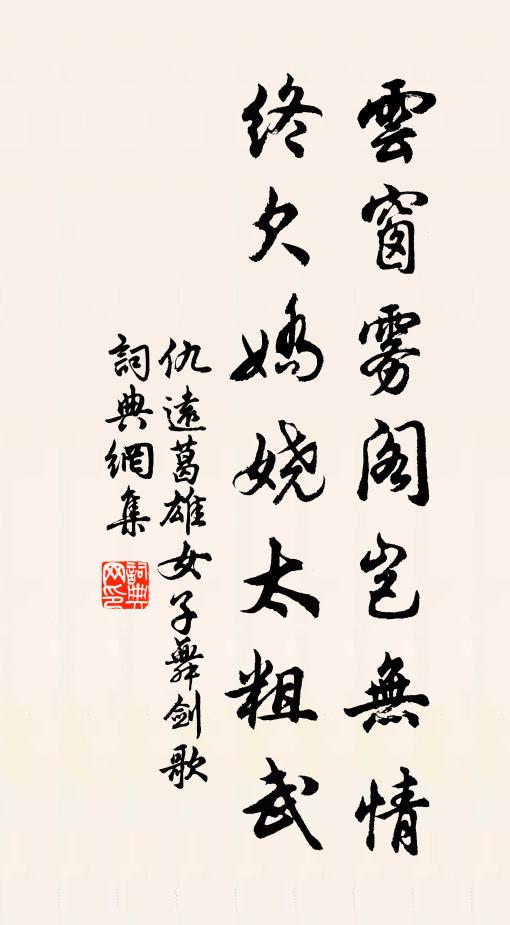 雲窗雾阁岂無情
终欠嬌娆太粗武
仇遠葛雄女子舞剑歌
詞典網集
詞典网印